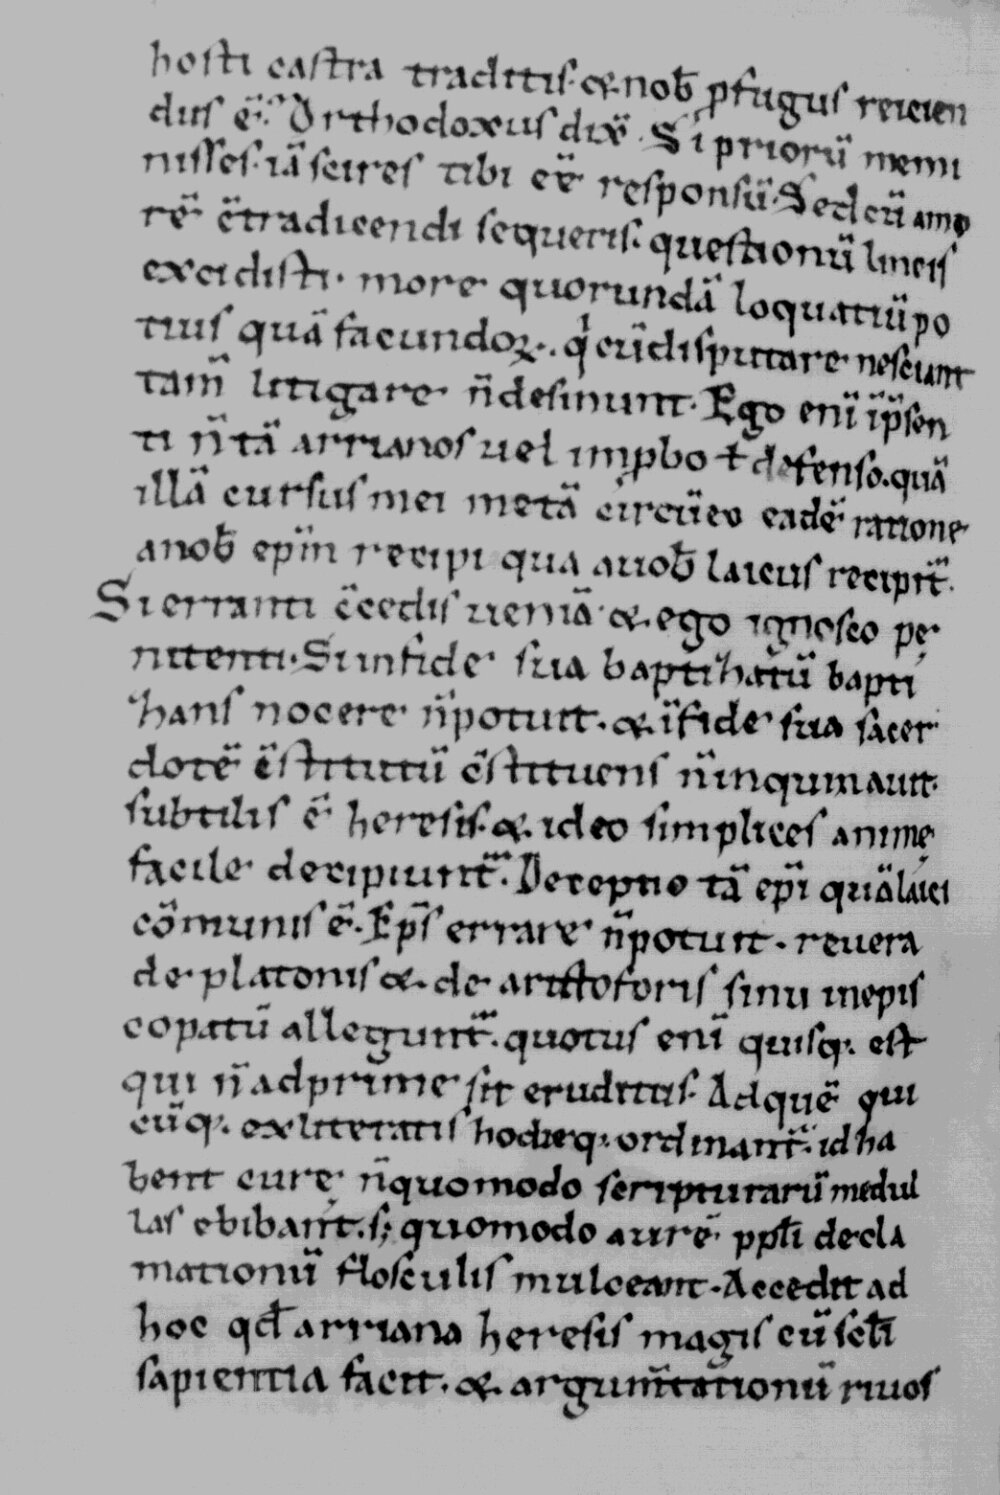 hosti castra traditis. & nob̄ p̱fugus reicien
dus ē. Orthodoxus dix̄. Si priorū memi
nisses. iā scires tibi eē̄ responsū. Sed cū amo
rē c̄tradicendi sequeris. questionū lineis
excidisti. more quorundā loquatiū po
tius quā facundoꝝ. qͥ cū disputare nesciant
tam̄ litigare n̄ desinunt. Ego eni̅ i̅p̄sen
ti n̄ tā arrianos uel imp̱bo ł defenso. quā
illā cursus mei metā circūeo eadē ratione
a nob̄ ep̄m recipi qua a uob̄ laicus recipit̄.
Si erranti c̄cedis ueniā. & ego ignosco pę
nitenti. Si in fide sua baptihatū bapti
hans nocere n̄ potuit. & i̅ fide sua sacer
dotē c̄stitutū c̄stituens n̄ inquinauit.
subtilis ē heresis. & ideo simplices animę
facile decipiunt̄. Deceptio tā ep̄i quā laici
cōmunis ē. Ep̄s errare n̄ potuit. reuera
de platonis & de aristoforis sinu in epis
copatū allegunt̄. quotus eni̅ quisq. est
qui n̄ adprime sit eruditus. Ad quē qui
cūq. ex literatis hodieq. ordinant̄. id ha
bent curę n̄ quomodo scripturarū medul
las ebibant. s; quomodo aurē ppłi decla
mationū flosculis mulceant. Accedit ad
hoc qđ arriana heresis magis cū scłi
sapientia facit. & argum̄tationū riuos